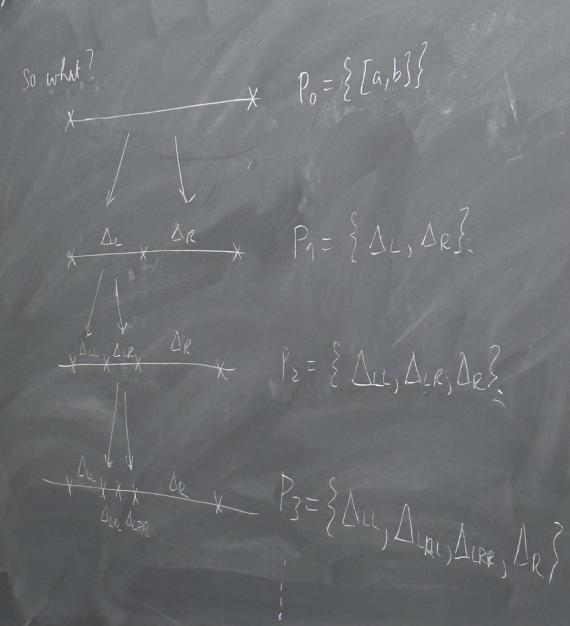 So what?
P₀ = {[a,b]}
Δ_L Δ_R
P₁ = {Δ_L, Δ_R}.
Δ_LL Δ_LR Δ_R
P₂ = {Δ_LL, Δ_LR, Δ_R}.
Δ_LL Δ_R
Δ_LRR
P₃ = {Δ_LL, Δ_LRL, Δ_LRR, Δ_R}